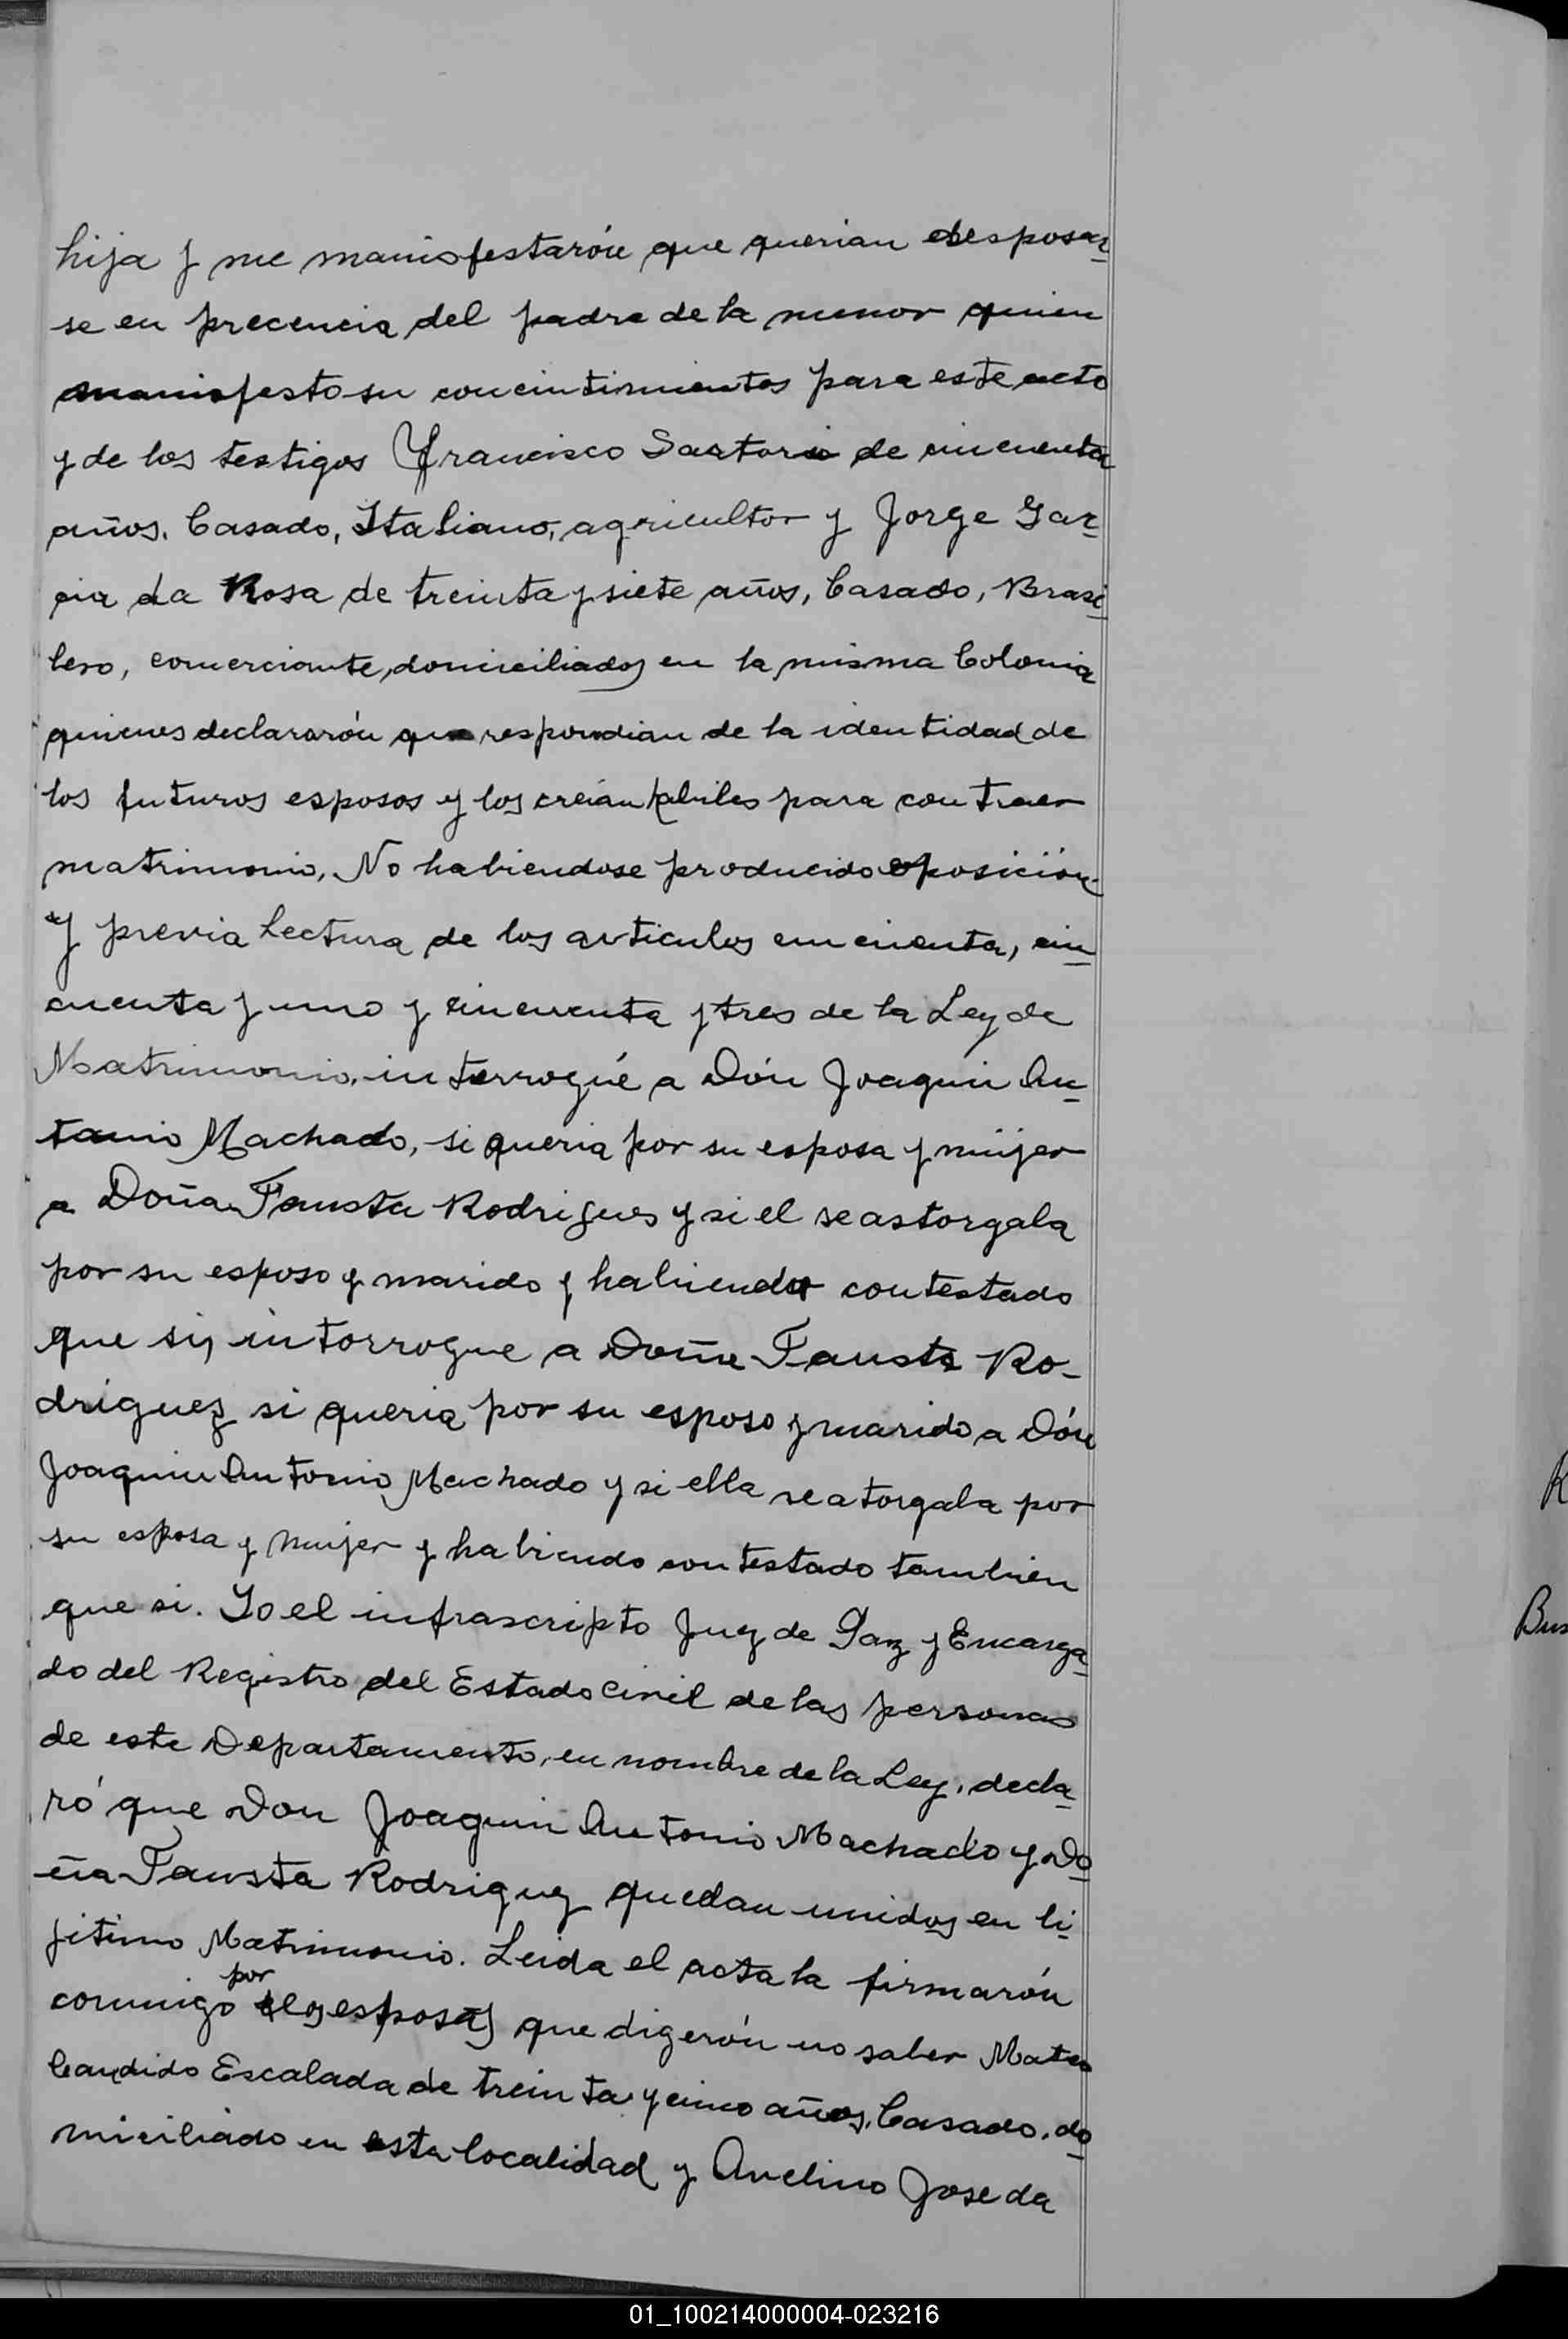 hija y me manisfestarón que querian desposar
se en precencia del padre de la menor quien
manisfesto su concintimientos para este acto
y de los testigos Francisco Sartori de cincuenta
años. Casado, Italiano, agricultor y Jorge Gar
cia da Rosa de treinta y siete años, Casado, Brasi
lero, comerciante, domiciliados en la misma Colonia
quienes declararón que respondian de la identidad de
los futuros esposos y los creian habiles para contraer
matrimonio, No habiendose producido oposición
y previa Lectura de los articulos cincuenta, cin
cuenta y uno y cincuenta y tres de la Ley de
Matrimonio, interrogué a Dón Joaquin An
tonio Machado, si queria por su esposa y mujer
a Doña Fausta Rodrigues y si el se astorgaba
por su esposo y marido y habiendo contestado
que si, intorrogue a Doña Fausta Ro-
driguez si queria por su esposo y marido a Dón
Joaquin Antonio Machado y si ella se atorgaba por
su esposa y mujer y habiendo contestado tambien
que si. Yo el infrascripto Juez de Paz y Encarga
do del Registro del Estado Civil de las personas
de este Departamento, en nombre de la Ley, decla
ró que Don Joaquin Antonio Machado y Do
ña Fausta Rodriguez quedan unidos en li
jitimo Matrimonio. Leida el acta la firmarón
por
conmigo los esposos que digerón no saber Mateo
Candido Escalada de treinta y cinco años, Casado, do
miciliado en esta localidad y Avelino Jose da
R
Bus
01_100214000004-023216